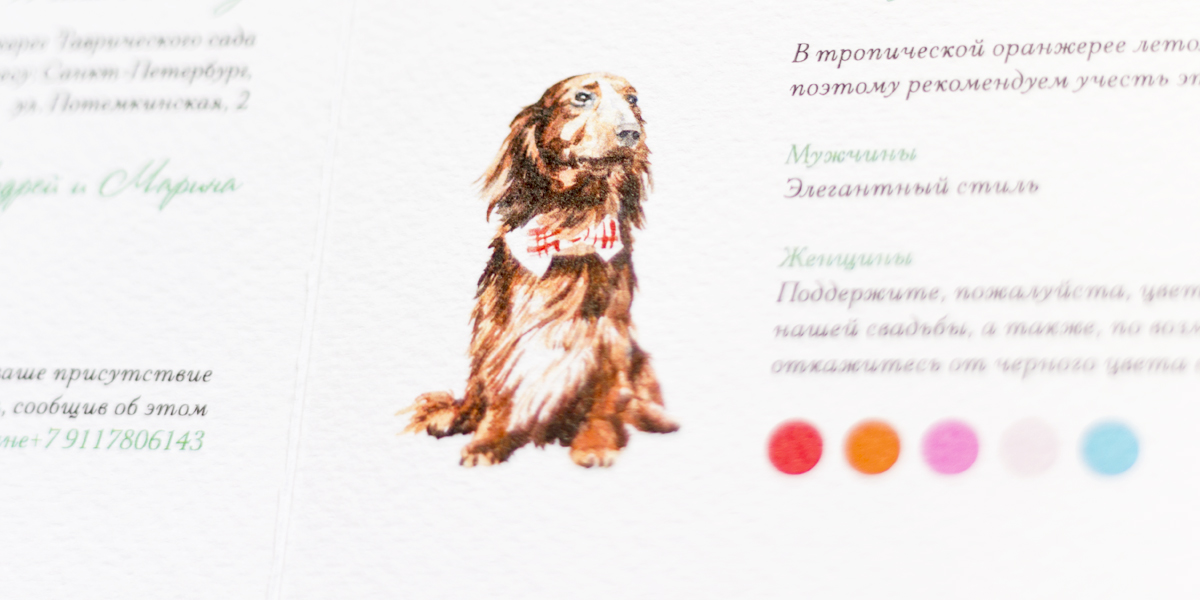 Таврического сада
Санкт-Петербург,
ул. Потемкинская, 2
и Марина
присутствие
, сообщив об этом
+7 9117806143
В тропической оранжерее
поэтому рекомендуем учесть
Мужчины
Элегантный стиль
Женщины
Поддержите, пожалуйста,
нашей свадьбы, а также, по
откажитесь от черного цвета